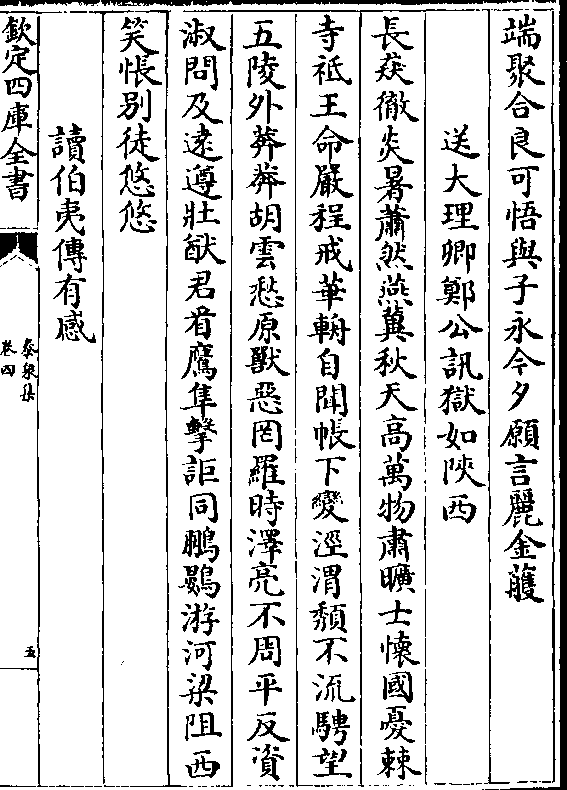 端聚合良可悟與子永今夕願言麗金雘
送大理卿鄭公訊獄如陜西
長莢徹炎暑蕭然燕冀秋天高萬物肅曠士懷國憂棘
寺祗王命嚴程戒華輈自聞帳下變涇渭頽不流騁望
五陵外莽莽胡雲愁原獸惡罔羅時澤亮不周平反資
淑問及逺遵壯猷君看鷹隼擊詎同鵬鷃游河梁阻西
笑悵别徒悠悠
讀伯夷傳有感
欽定四庫全書
泰泉集
卷四
五